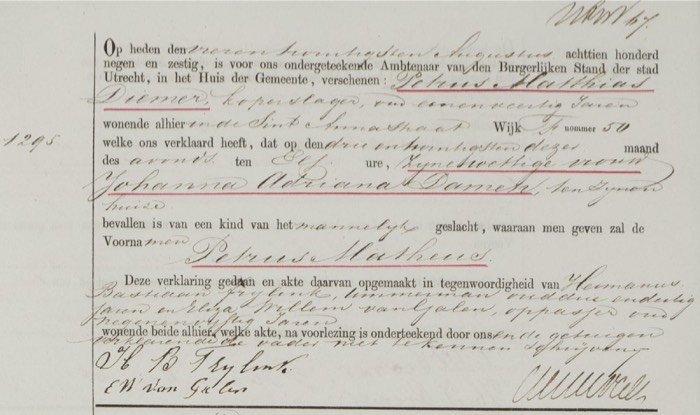 Op heden den vierentwintigsten Augustus achttien honderd
negen en zestig, is voor ons ondergeteekende Ambtenaar van den Burgerlijken Stand der stad
Utrecht, in het Huis der Gemeente, verschenen: Petrus Matthias
Diemer, koperslager, oud eenenveertig Jaren
wonende alhier in de Sint Annastraat Wijk F nommer 50
1295
welke ons verklaard heeft, dat op den drieentwintigsten dezes maand
des avonds ten Elf ure, Zyne wettige vrouw
Johanna Adriana Damen, ten zynen
huize
bevallen is van een kind van het mannelyk geslacht, waaraan men geven zal de
Voornamen Petrus Matheus.
Deze verklaring gedaan en akte daarvan opgemaakt in tegenwoordigheid van Hermanus
Bastiaan Frylink, timmerman oud drie endertig
Jaren en Eliza Willem van Galen, oppasser oud
Jaren
wonende beide alhier, welke akte, na voorlezing is onderteekend door ons en de getuigen
verklarende de vader niet te kennen schryven
H B Frylink
EW van Galen